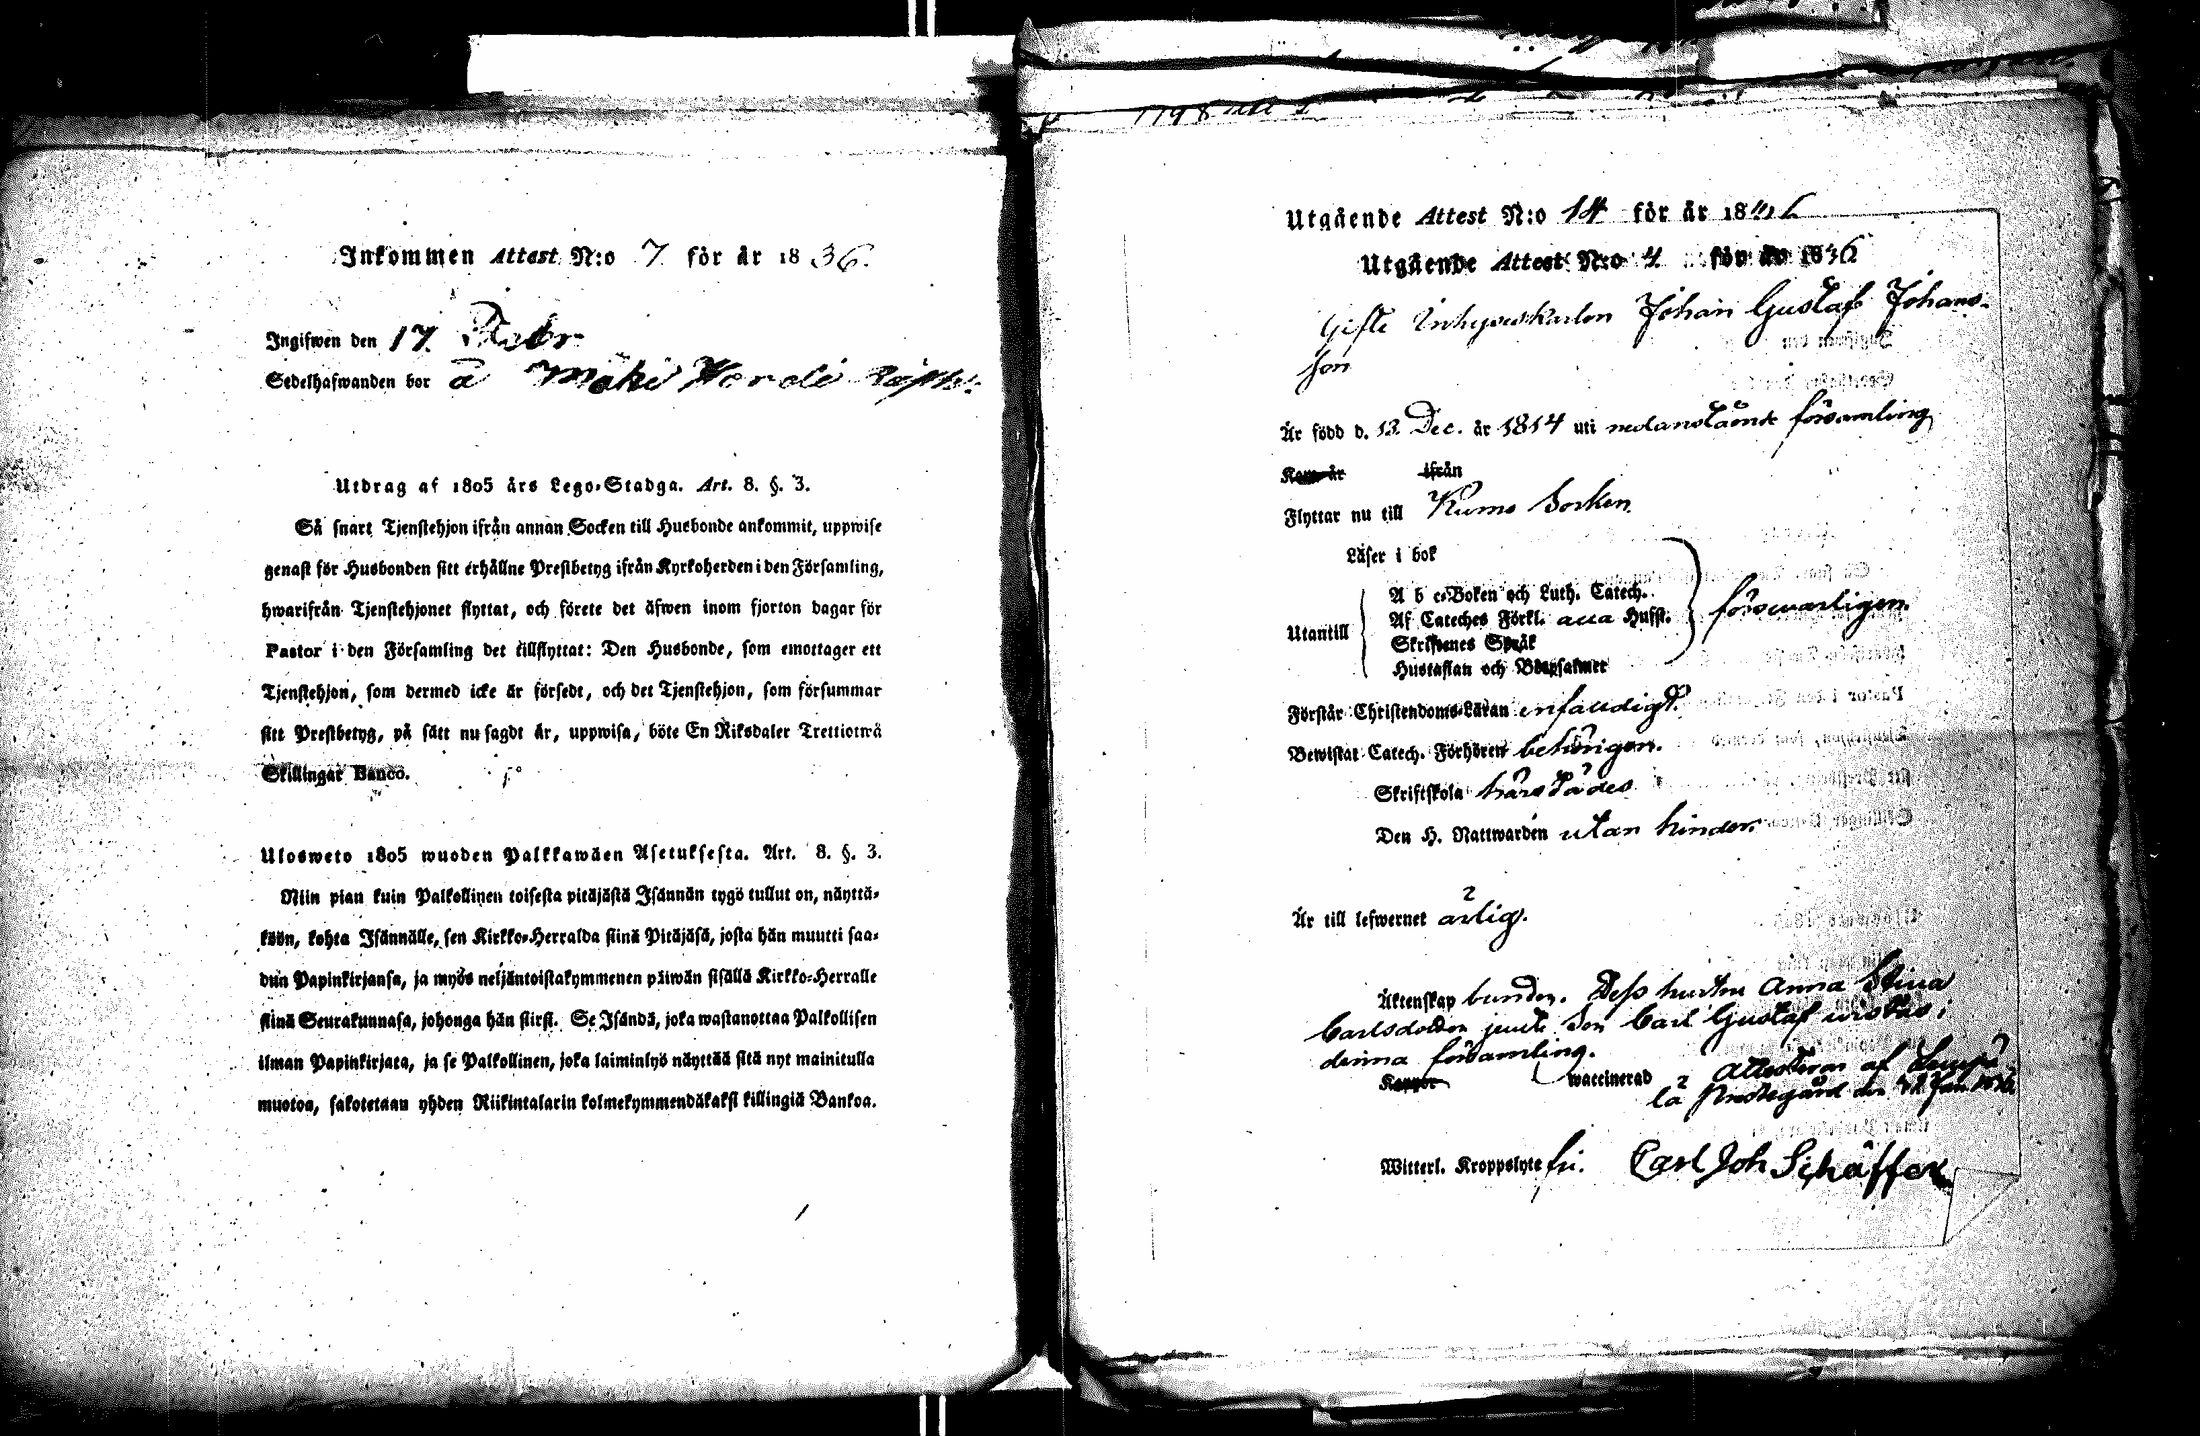 Inkommen Attest N:o 7 för år 1836.
Ingifwen den 17. Febr
Sedelhafwanden bor å Mäki
Utdrag af 1805 års Lego-Stadga. Art. 8. §. 3.
Så snart Tjenstehjon ifrån annan Socken till Husbonde ankommit, uppwise
genast för Husbonden sitt erhållne Prestbetyg ifrån Kyrkoherden i den Församling,
hwarifrån Tjenstehjonet flyttat, och förete det äfwen inom fjorton dagar för
Pastor i den Församling det tillflyttat: Den Husbonde, som emottager ett
Tjenstehjon, som dermed icke är försedt, och det Tjenstehjon, som försummar
sitt Prestbetyg, på sätt nu sagdt är, uppwisa, böte En Riksdaler Trettiotwå
Skillingar Banco.
Ulosweto 1805 wuoden Palkkawäen Asetuksesta. Art. 8. §. 3.
Niin pian kuin Palkollinen toisesta pitäjästä Isännän tygö tullut on, näyttä-
köön, kohta Isännälle, sen Kirkko-Herralda siinä Pitäjäsä, josta hän muutti saa-
dun Papinkirjansa, ja myös neljäntoistakymmenen päiwän sisällä Kirkko-Herralle
siinä Seurakunnasa, johonga hän siirsi. Se Isändä, joka wastanottaa Palkollisen
ilman Papinkirjata, ja se Palkollinen, joka laiminlyö näyttää sitä nyt mainitulla
muotoa, sakotetaan yhden Riikintalarin kolmekymmendäkaksi killingiä Bankoa.
1798
Utgående Attest N:o 14 för år 18
Utgående Attest N:o 4 för år 1836
Gifte Inhyseskarlen Johan Gustaf Johans-
son
Är född d. 13. Dec. år 1814 uti nedanstående församling
Kom år ifrån
Flyttar nu till Kumo Socken.
Läser i bok
A b c-Boken och Luth. Catech.
Utantill Af Cateches Förkl. alla Hufst. förswarligen.
Skriftenes Språk
Hustaflan och Botpsalmer
Förstår Christendoms-Läran enfaldigt.
Bewistat Catech. Förhören behörigen.
Skriftskola härstädes
Den H. Nattwarden utan hinder.
Är till lefwernet ärlig.
Äktenskap bunden. Dess hustru Anna Stina
Carlsdotter jemte Son Carl Gustaf wistas i
denna församling.
Koppor waccinerad Attesterar af
la Prestegård den Jan. 1836
Witterl. Kroppslyte fri. Carl Joh Schäffer